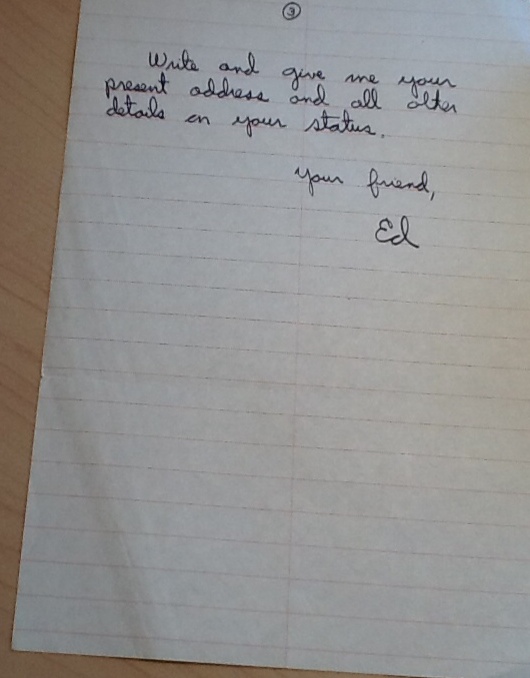 3
Write and give me your
present address and all other
details on your status.
Your friend,
Ed